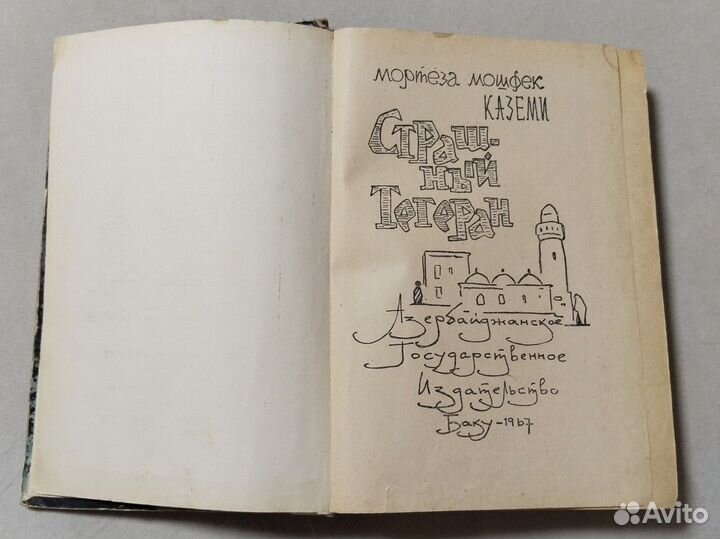 мортеза мошфек
КАЗЕМИ
СТРАШ-
НЫЙ
ТЕГЕРАН
Азербайджанское
Государственное
Издательство
Баку-1967
Avito